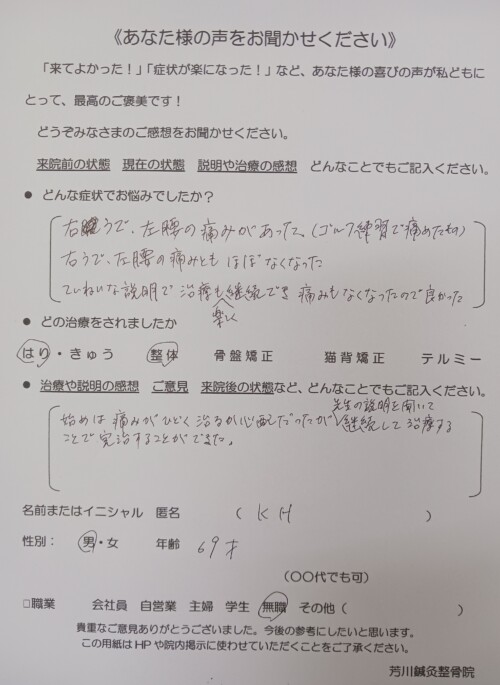 《あなた様の声をお聞かせください》
「来てよかった！」「症状が楽になった！」など、あなた様の喜びの声が私どもに
とって、最高のご褒美です！
どうぞみなさまのご感想をお聞かせください。
来院前の状態　現在の状態　説明や治療の感想　どんなことでもご記入ください。
● どんな症状でお悩みでしたか？
右うで、左腰の痛みがあった、(ゴルフ練習で痛めたもの)
右うで、左腰の痛みとも ほぼなくなった
ていねいな説明で 治療も継続でき 痛みもなくなったので良かった
楽しく
● どの治療をされましたか
はり・きゅう　整体　骨盤矯正　猫背矯正　テルミー
● 治療や説明の感想　ご意見　来院後の状態など、どんなことでもご記入ください。
先生の説明を聞いて
始めは 痛みがひどく 治るか心配だったが 継続して 治療する
ことで完治することができた。
名前またはイニシャル　匿名　( K H )
性別：　男・女　年齢　69才
(〇〇代でも可)
□職業　会社員　自営業　主婦　学生　無職　その他 ( )
貴重なご意見ありがとうございました。今後の参考にしたいと思います。
この用紙はHPや院内掲示に使わせていただくことをご了承ください。
芳川鍼灸整骨院